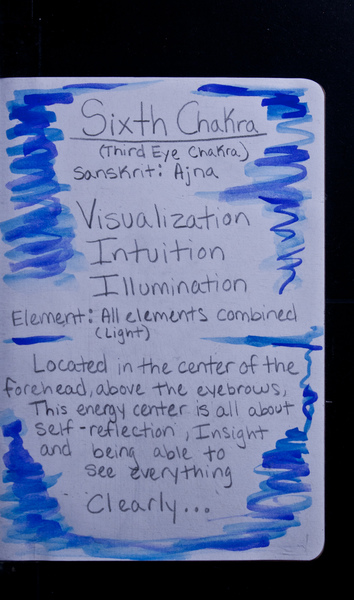 Sixth Chakra
(Third Eye Chakra)
Sanskrit: Ajna
Visualization
Intuition
Illumination
Element: All elements combined
(Light)
Located in the center of the
forehead, above the eyebrows,
This energy center is all about
self-reflection, Insight
and being able to
see everything
Clearly...